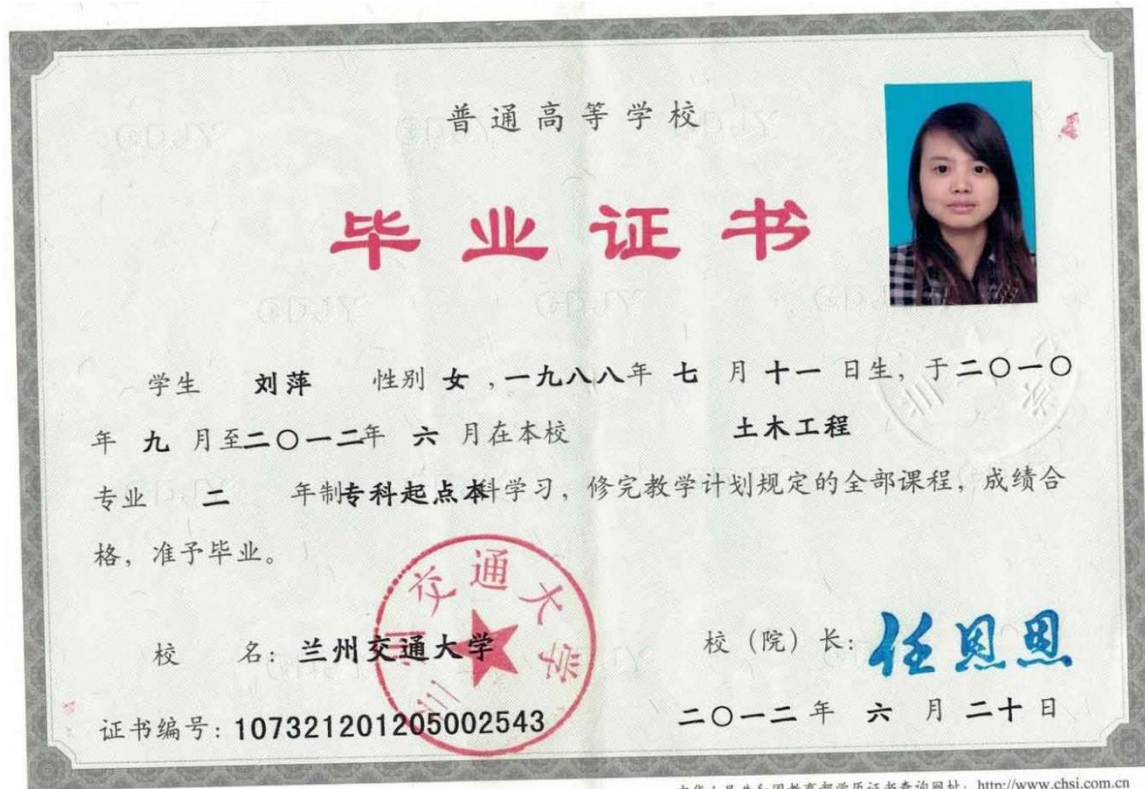 普通高等学校
毕业证书
学生 刘萍 性别 女 ,一九八八年 七 月 十一 日生，于二〇一〇
年 九 月至二〇一二年 六 月在本校 土木工程
专业 二 年制专科起点本科学习，修完教学计划规定的全部课程，成绩合
格，准予毕业。
兰州交通大学
校 名：兰州交通大学 校（院）长：任恩恩
证书编号：107321201205002543 二〇一二年 六 月 二十日
中华人民共和国教育部学历证书查询网址：http://www.chsi.com.cn